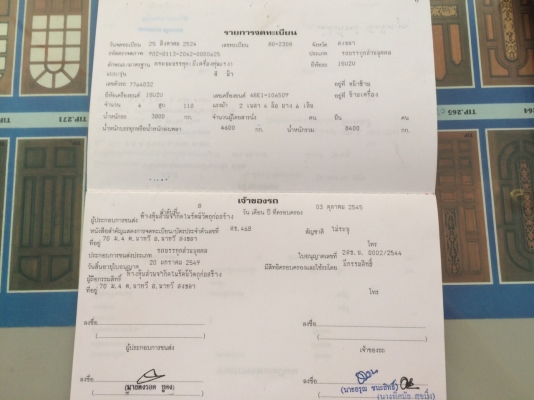 รายการจดทะเบียน
วันจดทะเบียน 25 สิงหาคม 2524 เลขทะเบียน 80-2308 จังหวัด สงขลา
ประเภท รถบรรทุกส่วนบุคคล
ลักษณะ/มาตรฐาน กระบะบรรทุก(มีเครื่องทุ่นแรง) ยี่ห้อรถ ISUZU
แบบ/รุ่น สี ฟ้า
เลขตัวรถ 7764032 อยู่ที่ หน้าซ้าย
ยี่ห้อเครื่องยนต์ ISUZU เลขเครื่องยนต์ 4BE1-104509 อยู่ที่ ข้างเครื่อง
จำนวน 4 สูบ 110 แรงม้า 2 เพลา 4 ล้อ ยาง 6 เส้น
น้ำหนักรถ 3800 กก. จำนวนผู้โดยสารนั่ง คน ยืน คน
น้ำหนักบรรทุกหรือน้ำหนักลงเพลา 4600 กก. น้ำหนักรวม 8400 กก.
เจ้าของรถ
ลำดับที่ 8 วัน เดือน ปี ที่ครอบครอง 03 ตุลาคม 2545
ผู้ประกอบการขนส่ง
หนังสือสำคัญแสดงการจดทะเบียน/บัตรประจำตัวเลขที่ สัญชาติ ไม่ระบุ
ที่อยู่ 70 ม.4 ต.นาทวี อ.นาทวี สงขลา โทร
ประกอบการขนส่งประเภท รถบรรทุกส่วนบุคคล ใบอนุญาตเลขที่ 0002/2544
วันสิ้นอายุใบอนุญาต 20 มกราคม 2549 มีสิทธิครอบครองและใช้รถโดย มีกรรมสิทธิ์
ผู้ถือกรรมสิทธิ์
ที่อยู่ 70 ม.4 ต.นาทวี อ.นาทวี สงขลา โทร
ลงชื่อ ลงชื่อ
ผู้ประกอบการขนส่ง เจ้าของรถ
ลงชื่อ ลงชื่อ
TIP.271
TIP.265
TIP.264